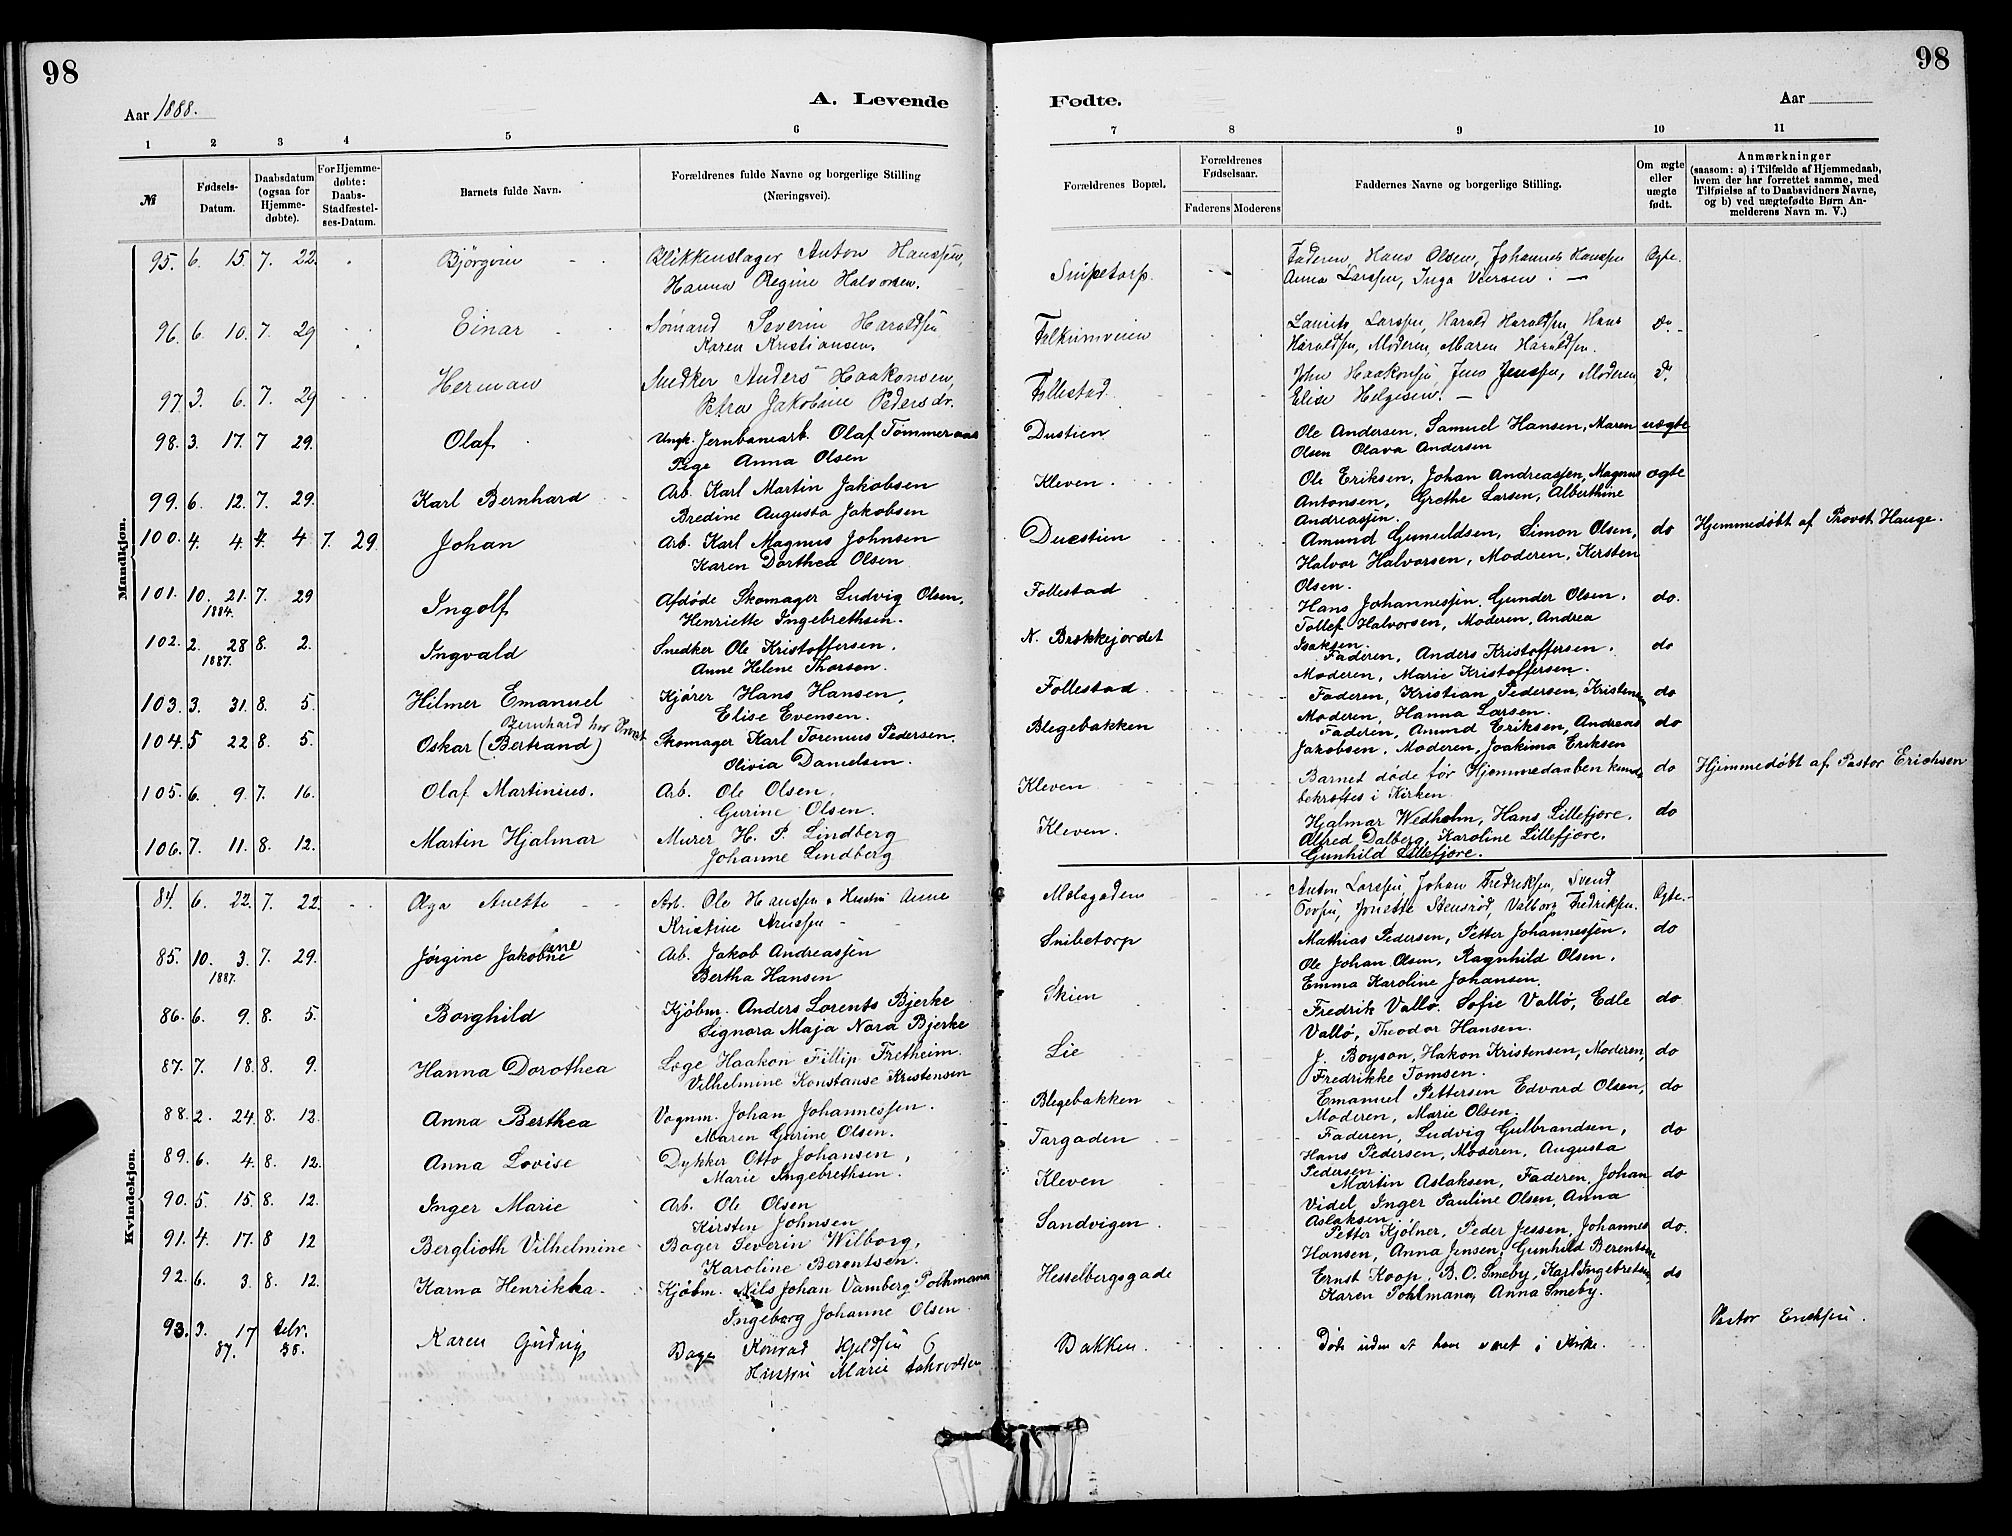 98
98
Aar 1888.
A. Levende
Fødte.
Aar
1 2 3 4 5 6
7 8 9 10 11
№
Fødsels-Datum.
Daabsdatum (ogsaa for Hjemmedøbte).
For Hjemmedøbte: Daabs-Stadfæstelses-Datum.
Barnets fulde Navn.
Forældrenes fulde Navne og borgerlige Stilling (Næringsvei).
Forældrenes Bopæl.
Forældrenes Fødselsaar.
Faderens Moderens
Faddernes Navne og borgerlige Stilling.
Om ægte eller uægte født.
Anmærkninger
(saasom: a) i Tilfælde af Hjemmedaab, hvem der har forrettet samme, med Tilføielse af to Daabsvidners Navne, og b) ved uægtefødte Børn Anmelderens Navn m. V.)
Mandkjøn.
95. 6. 15. 7. 22. Bjørgvin Blikkenslager Anton Hanssen, Snipetorp. Faderen, Hans Olsen, Johannes Hanssen Ægte.
Hanna Regine Halvorsen. Anna Larssen, Inga Iversen. —
96. 6. 10. 7. 29 Einar Sømand Severin Haraldsen Falkumveien Laurits Larssen, Harald Haraldsen, Hans do.
Karen Kristiansen. Haraldsen, Moderen, Maren Haraldsen.
97. 3. 6. 7. 29 Herman Snedker Anders Haakonsen, Follestad John Haakonsen, Jens Jenssen, Moderen do.
Petra Jakobine Pedersdr. Elise Helgesen. —
98. 3. 17. 7 29. Olaf Ungk. Jernbanearb. Olaf Tømmeraas Dustien Ole Andersen, Samuel Hansen, Maren uægte
Pige Anna Olsen Olsen Olava Andersen
99. 6. 12. 7. 29. Karl Bernhard Arb. Karl Martin Jakobsen Kleven. Ole Eriksen, Johan Andreassen, Magnus ægte
Bredine Augusta Jakobsen Antonsen, Grethe Larsen, Alberthine Andreassen.
100. 4. 4. 4. 4 7. 29. Johan Arb. Karl Magnus Johnsen Duestien Amund Gunuldsen, Simon Olsen, do Hjemmedøbt af Provst Hauge.
Karen Dorthea Olsen Halvor Halvorsen, Moderen, Kersten Olsen.
101. 10. 21. 7. 29 Ingolf Afdøde Skomager Ludvig Olsen, Follestad Hans Johannessen, Gunder Olsen, do.
1884. Henriette Ingebrethsen. Tollef Halvorsen, Moderen, Andrea Isaksen.
102. 2. 28 8. 2. Ingvald Snedker Ole Kristoffersen. N. Brekkejordet Faderen, Anders Kristoffersen, do
1887. Anne Helene Thorsen. Moderen, Marie Kristoffersen.
103. 3. 31. 8. 5. Hilmer Emanuel Kjører Hans Hansen, Follestad Faderen, Kristian Pedersen, Kristensen do
Elise Evensen. Moderen, Hanna Larsen.
Bernhard
104. 5 22 8. 5. Oskar (Bertrand) Skomager Karl Torenius Pedersen. Blegebakken Faderen, Amund Eriksen, Andreas do
Olivia Danielsen. Jakobsen, Moderen, Joakima Eriksen
105. 6. 9. 7. 16. Olaf Martinius. Arb. Ole Olsen. Kleven Barnet døde før Hjemmedaaben kunde do Hjemmedøbt af Pastor Erichsen
Gurine Olsen. bekræftes i Kirken.
106. 7. 11. 8. 12. Martin Hjalmar Murer H. P. Lindberg Kleven. Hjalmar Wedholm, Hans Lillefjøre. do
Johanne Lindberg Alfred Dalberg, Karoline Lillefjøre.
Gunhild Lillefjøre.
Kvindekjøn.
84. 6. 22. 7. 22. Olga Anette Arb. Ole Hanssen & Hustru Anne Mælagaden Anton Larssen, Johan Fredriksen, Svend Ægte.
Kristine Torssen, Jonette Stensrød, Valborg Fredriksen.
85. 10. 3. 7. 29. Jørgine Jakobine Arb. Jakob Andreassen Snibetorp Mathias Pedersen, Petter Johannessen, do
1887. Bertha Hansen Ole Johan Olsen, Ragnhild Olsen.
Emma Karoline Johansen.
86. 6. 9. 8. 5. Borghild Kjøbm. Anders Lorents Bjerke Skien Fredrik Vallø. Sofie Vallø, Edle do
Signora Maja Nora Bjerke Vallø, Theodor Hansen.
87. 7. 18. 8. 9. Hanna Dorothea Læge Haakon Fillip Fretheim. Lie J. Boyson, Hakon Kristensen, Moderen, do
Vilhelmine Konstanse Kristensen Fredrikke Tomsen.
88. 2. 24. 8. 12. Anna Berthea Vognm. Johan Johannessen. Blegebakken Emanuel Pettersen Edvard Olsen, do
Maren Gurine Olsen. Moderen, Marie Olsen.
89. 6. 4. 8. 12. Anna Lovise Dykker Otto Johansen, Torgaden Faderen, Ludvig Gulbrandsen, do
Marie Ingebrethsen. Hans Pedersen, Moderen, Augusta Pedersen.
90. 5 15 8. 12. Inger Marie Arb. Ole Olsen Kleven Martin Aslaksen, Faderen, Johan do
Kirsten Johnsen Videl, Inger Pauline Olsen, Anna Aslaksen.
91. 4. 17. 8 12 Berglioth Vilhelmine Bager Severin Wilborg, Sandvigen Petter Kjølner, Peder Jessen, Johannes do.
Karoline Berentsen. Hansen, Anna Jensen, Gunhild Berentsen
92. 6. 3. 8. 12. Karna Henrikka. Kjøbm. Nils Johan Vamberg Pohlmann Hesselbergsgade Ernst Koop, B. O. Smeby, Karl Ingebretsen do
Ingeborg Johanne Olsen. Karen Pohlmann, Anna Smeby.
93. 3. 17 febr. Karen Gudrun Bager Konrad Kjeldsen & Bakken Døde uden at have været i Kirke. Pastor Erichsen.
87. 88. Hustru Marie